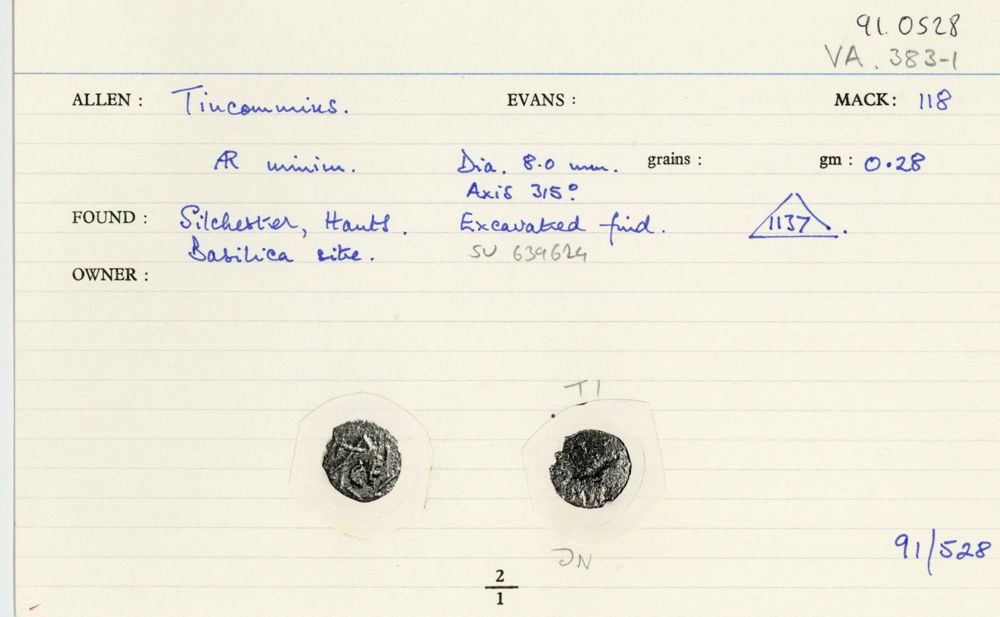 91.0528
VA. 383-1
ALLEN : Tincommius. EVANS : MACK: 118
AR minim. Dia. 8.0 mm. grains : gm : 0.28
Axis 315°
FOUND : Silchester, Hants. Excavated find. 1137.
Basilica site. SU 639624
OWNER :
TI
JN
91/528
2
1